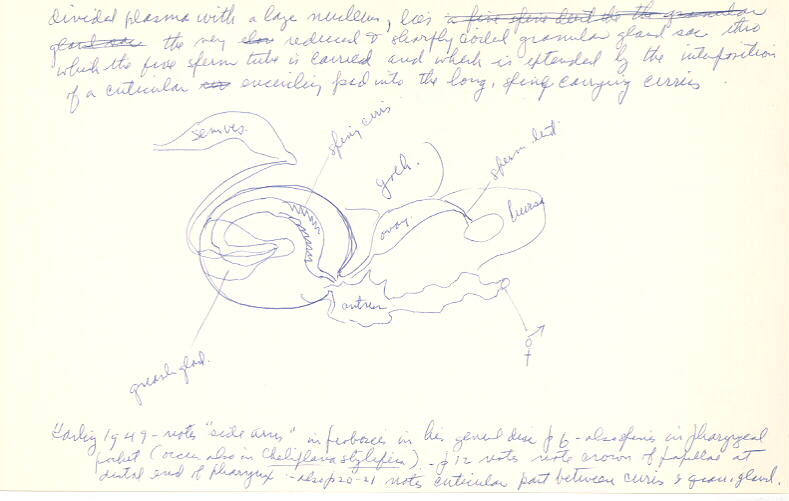 divided plasma with a large nucleus, lies a fine sperm duct the the granular
gland sac the very slow reduced & sharply coiled granular gland sac thru
which the fine sperm tube is carried and which is extended by the interposition
of a cuticular encircling pad into the long, spiny carrying cirrus
sem ves.
spiny cirrus
goll.
sperm duct.
ovary.
bursa
antrum
♂
granul. gland.
Karling 1949 - notes "side arms" in proboscis in his general disc p 6 - also spines in pharyngeal
pocket (occurs also in Cheliplana stylifera). - p 12 notes note crown of papellae at
distal end of pharynx - also p 20-21 notes cuticular part between cirrus & gran. gland.